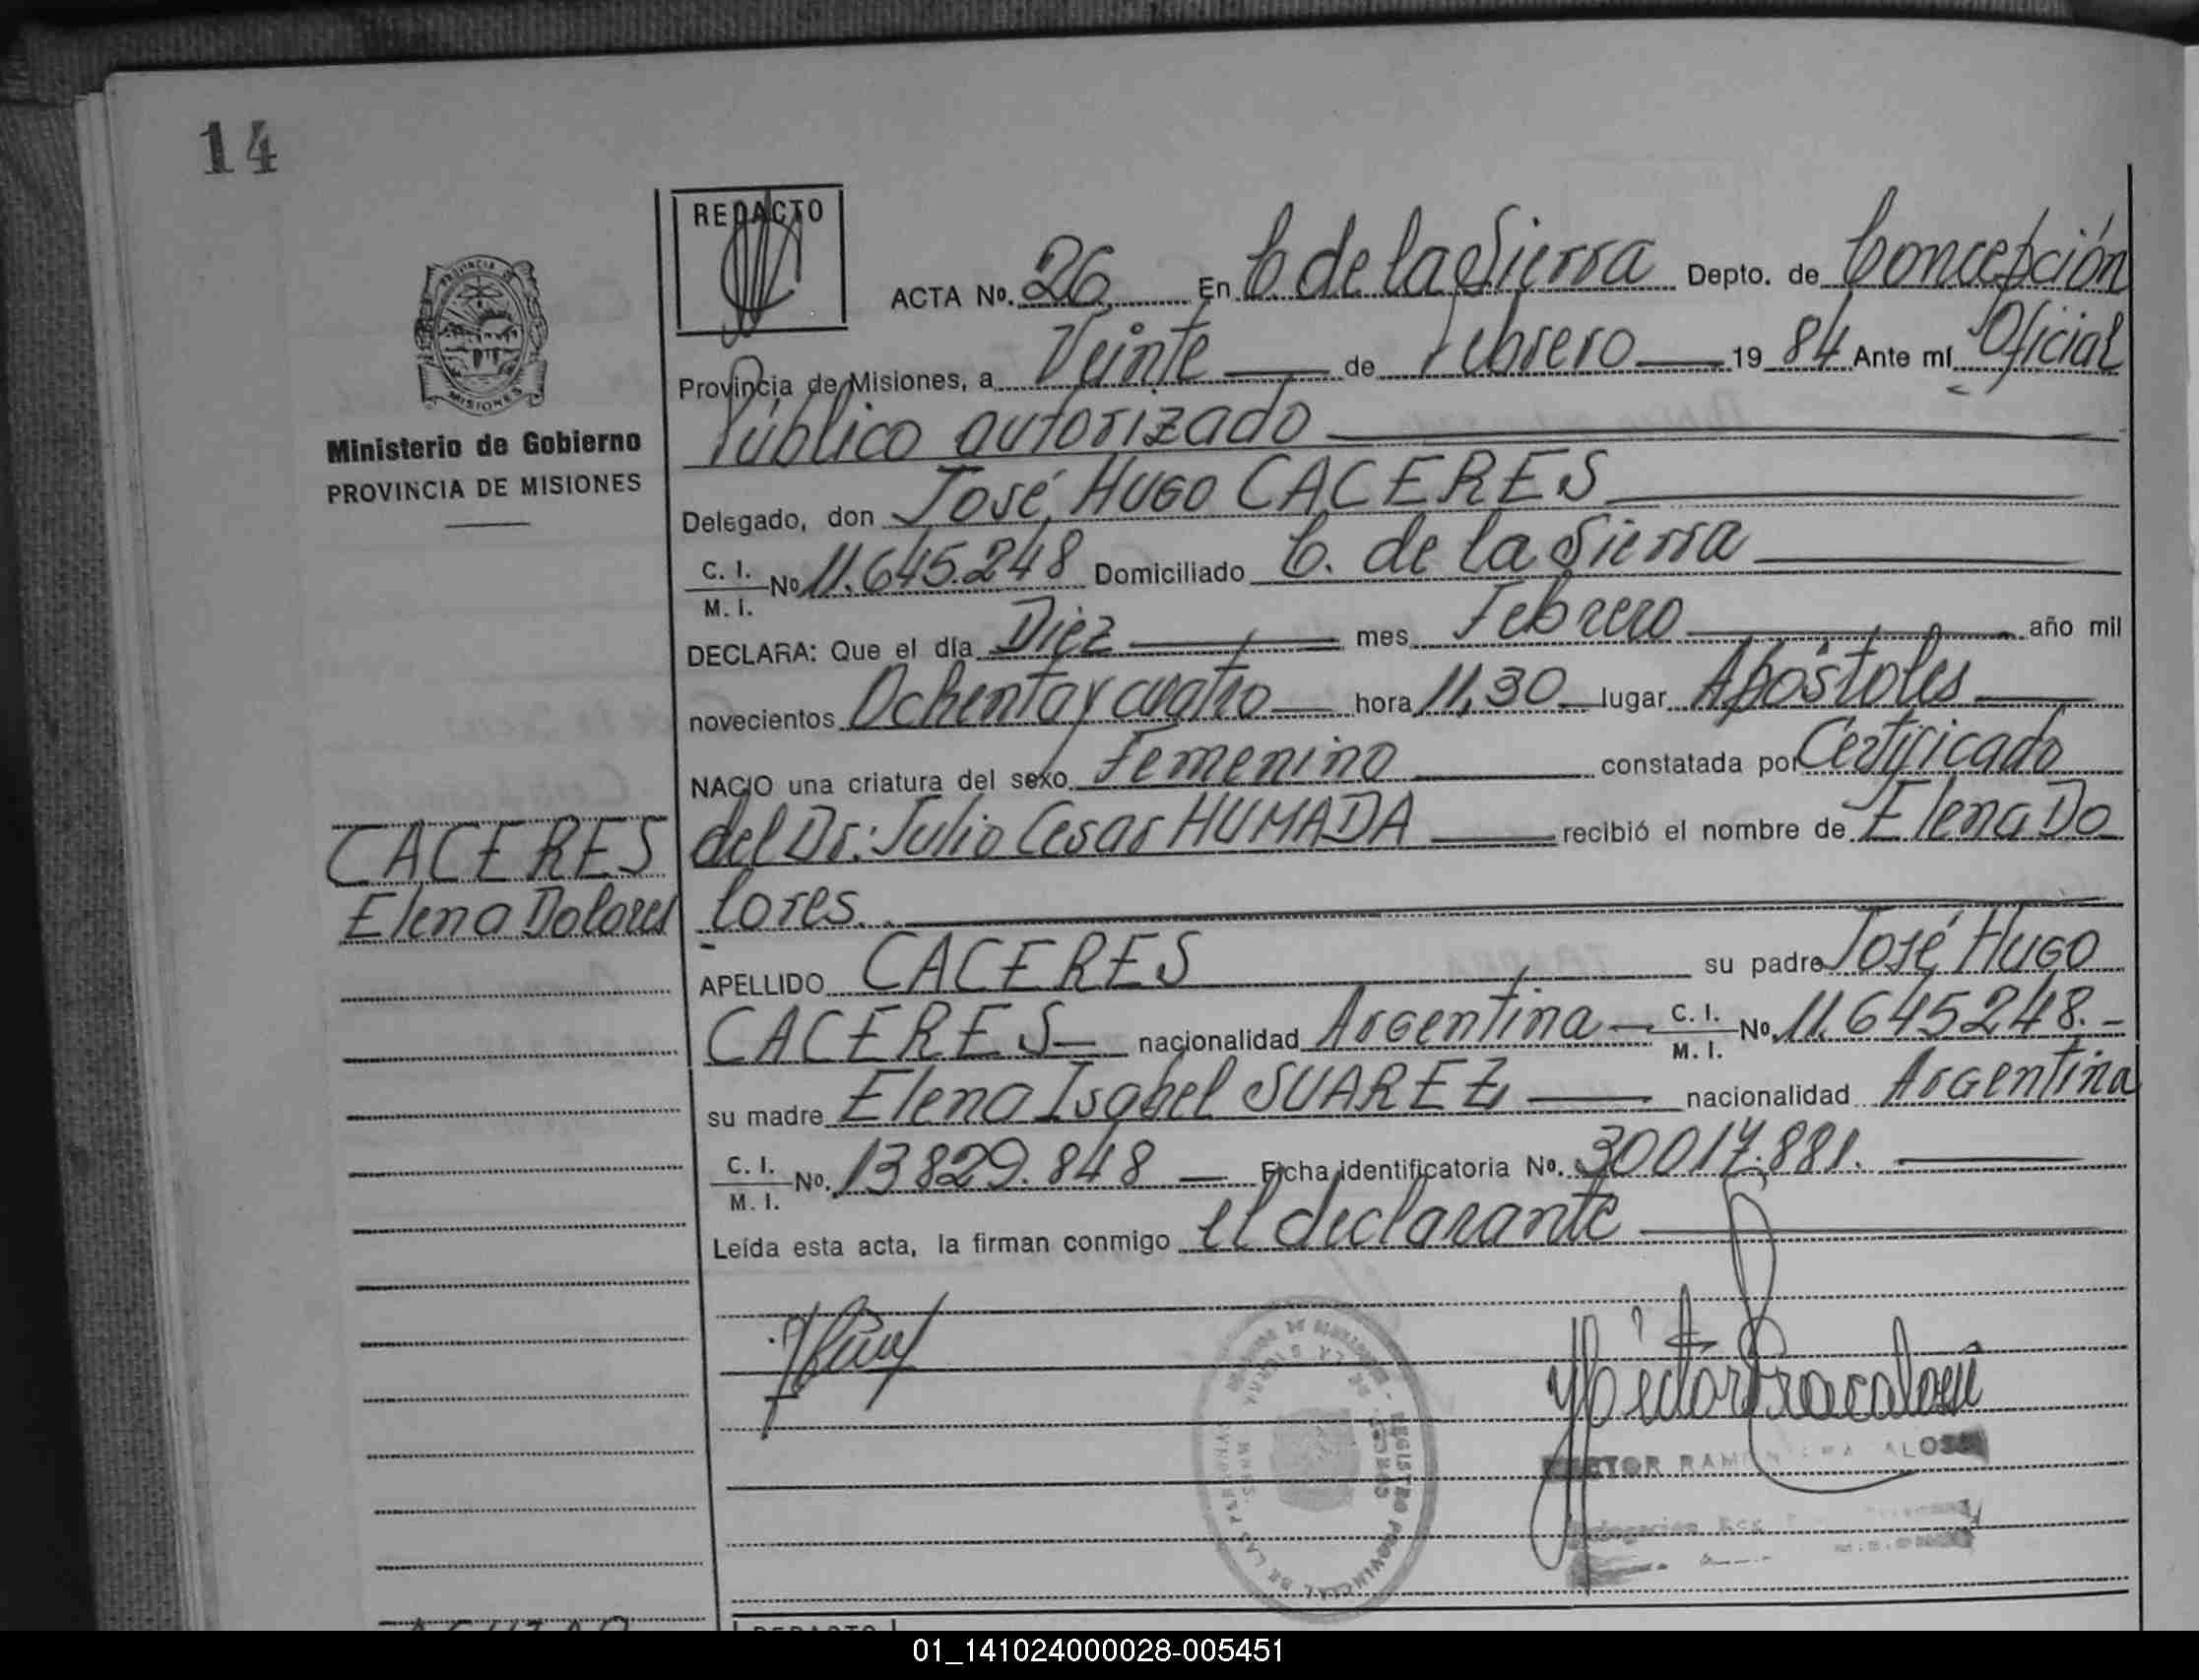 14
REDACTO
ACTA Nº. 26 En C de la Sierra Depto. de Concepción
Provincia de Misiones, a Veinte de Febrero 19 84 Ante mí Oficial
Público autorizado
Delegado, don José Hugo CACERES
C. I. M. I. Nº 11.645.248 Domiciliado C. de la Sierra
DECLARA: Que el día Diez mes Febrero año mil
novecientos Ochenta y cuatro hora 11,30 lugar Apóstoles
NACIO una criatura del sexo Femenino constatada por Certificado
del Dr: Julio Cesar HUMADA recibió el nombre de Elena Do
lores.
APELLIDO CACERES su padre José Hugo
CACERES nacionalidad Argentina C. I. M. I. Nº. 11.645248.-
su madre Elena Isabel SUAREZ nacionalidad Argentina
C. I. M. I. Nº. 13829.848 Ficha identificatoria Nº. 30017.881.
Leída esta acta, la firman conmigo el declarante
PROVINCIA DE
MISIONES
Ministerio de Gobierno
PROVINCIA DE MISIONES
CACERES
Elena Dolores
REGISTRO PROVINCIAL DE LAS PERSONAS
DE LA SIERRA
REDACTO
01_141024000028-005451